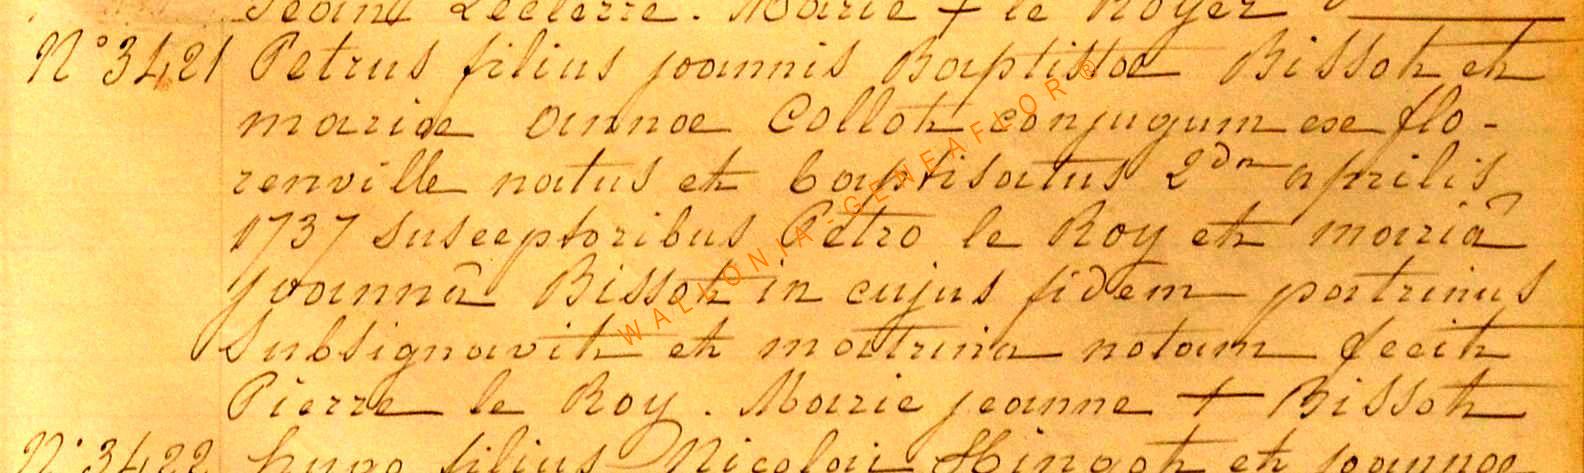 Jeanne Leclerre. Marie + le Royer
N° 3421 Petrus filius joannis Baptistae Bissot et
mariae annae Collot conjugum ex flo-
renville natus et baptisatus 2da aprilis
1737 susceptoribus Petro le Roy et mariâ
joannâ Bissot in cujus fidem patrinus
subsignavit et matrina notam fecit
Pierre le Roy. Marie jeanne + Bissot
N° 3422 hugo filius Nicolai Hingot et joannae
WALLONIA-GENEAFLOR®